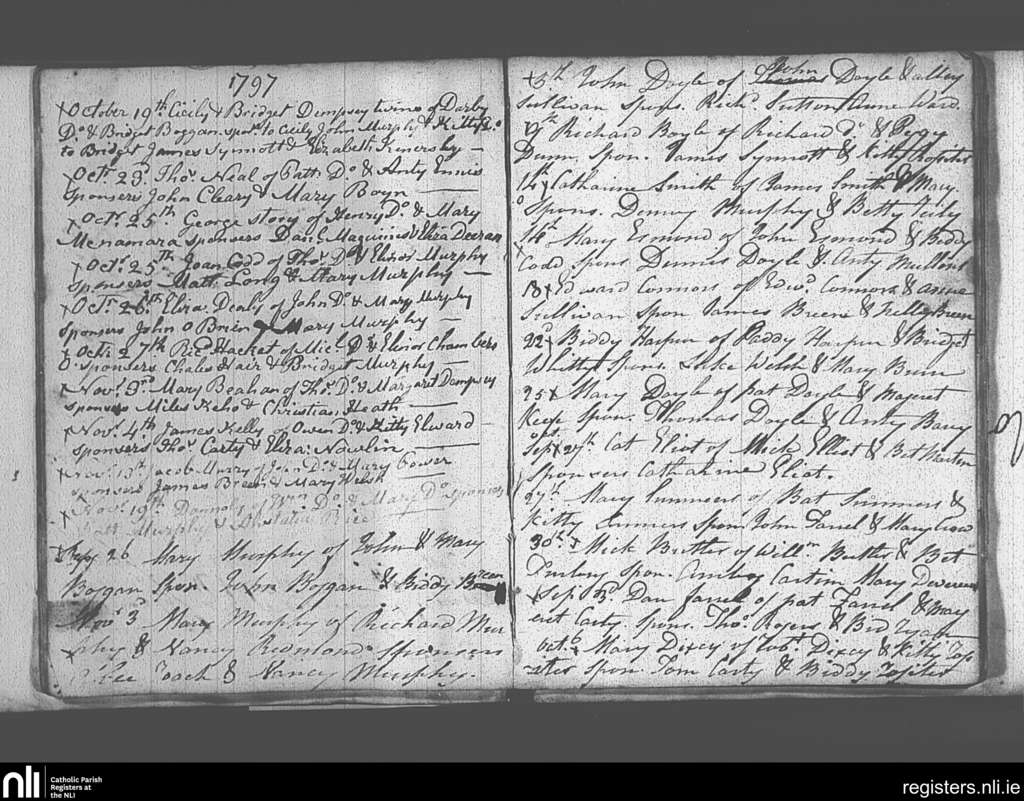 1797
October 19th Cicily & Bridget Dempsey twins of Darby
Do & Bridget Boggan sponrs to Cicily John Murphy & Kitty Do
to Bridget James Synnott & Elizabeth Kinersly
Octr 23d Thos Neal of Patt Do & Anty Ennis
Sponsers John Cleary & Mary Boyn
Octr 25th George Story of Henry Do & Mary
Menamara sponsers Danl Maguinis & Eliza Deeran
Octr 25th Joan Codd of Thos Do & Elinor Murphy
Sponsers Matt Long & Mary Murphy
Octr 26th Eliza Dealy of John Do & Mary Murphy
Sponsers John O Brien & Mary Murphy
Octr 27th Hacket of Micl Do & Elinor Chambers
sponsers Hair & Bridget Murphy
Novr 3rd Mary Beahan of Thos Do & Margaret Dempsey
sponsers Miles Keho & Christian Heath
Novr 4th James Kelly of Owen Do & Kitty Elward
sponsers Thos Carty & Eliza Nowlin
Novr 13th Jacob Murry of John Do & Mary Gower
sponsers James Breen & Mary Welsh
Novr 19th of Do & Mary Do sponsers
Murphy &
26 Mary Murphy of John & Mary
Boggan Spon. John Boggan & Biddy
Novr 3d Mary Murphy of Richard Mur
phy & Nancy Redmond sponsers
Roach & Nancy Murphy.
6th John Doyle of John Thomas Doyle & Alley
Sullivan spons. Richd Sutton Anne Ward.
9th Richard Boyle of Richard do & Peggy
Dunn. Spon. James Synnott & Kitty Rosseter
14th Catharine Smith of James Smith & Mary
Spons. Murphy & Betty
14th Mary Esmond of John Esmond & Biddy
Codd spons Dennis Doyle & Anty Mullins
18 Edward Connors of Edwd Connors &
Sullivan spon James Breene & Breen
22d Biddy Harpur of Paddy Harpur & Bridget
Whitty Spons. Luke Welsh & Mary Bunn
25 Mary Doyle of pat Doyle & Mageret
Keefe spon. Thomas Doyle & Anty Barry
Sep 27th Cat Eliot of Mick Elliot & Bet
Sponsers Catharine Eliot.
29th Mary Summers of Bat Summers &
Kitty Sinners spon John Farrel & Mary
30th Mick Butler of Willm Butler & Bet
Furlong spon. Mary Devereux
Sep. Dan Farrel of pat Farrel & Mary
Carty. spons. Thos Rogers & Bid Ryan
Octb Mary Dixcy of Tobs Dixey & Kitty Ros
seter spon Tom Carty & Biddy Rossiter
nli
Catholic Parish
Registers at
the NLI
registers.nli.ie